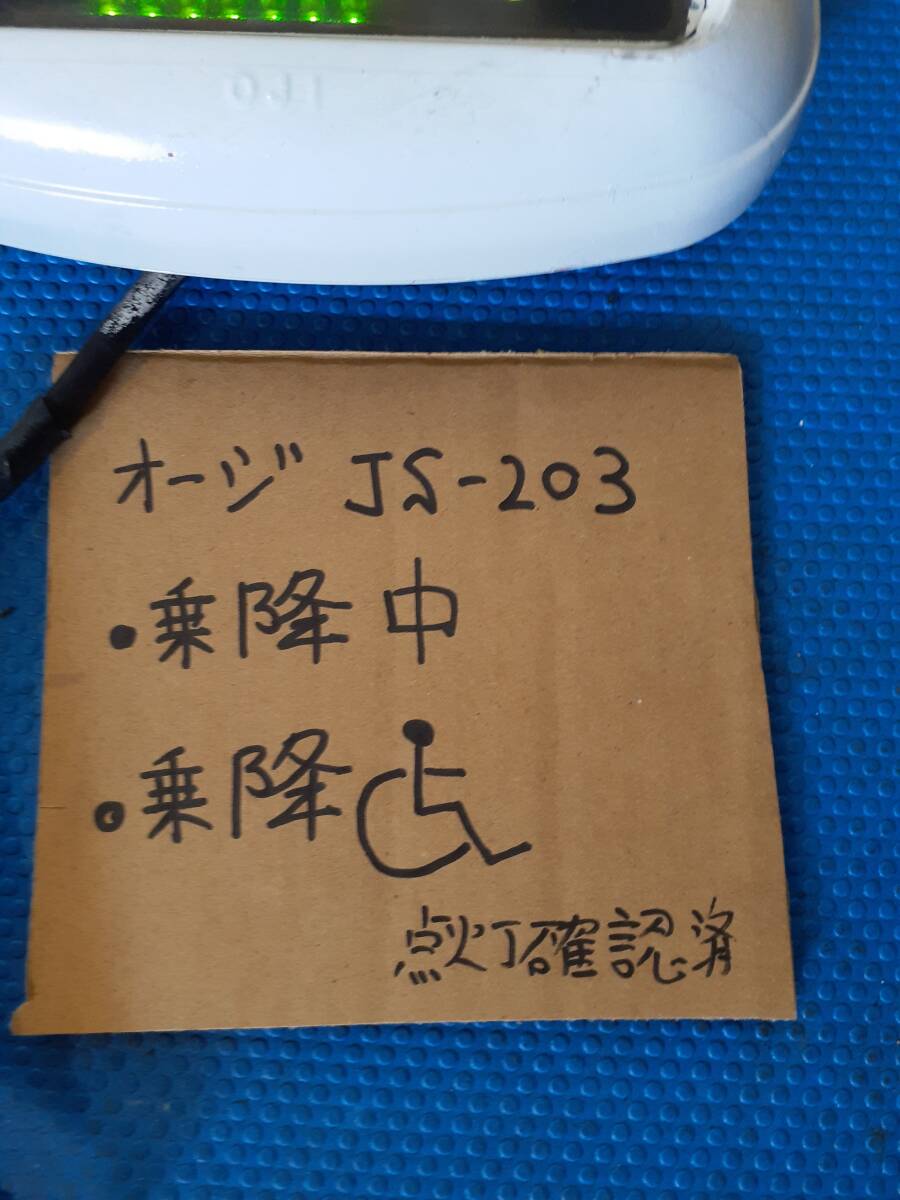 オージ JS-203
・乗降中
・乗降♿
点灯確認済